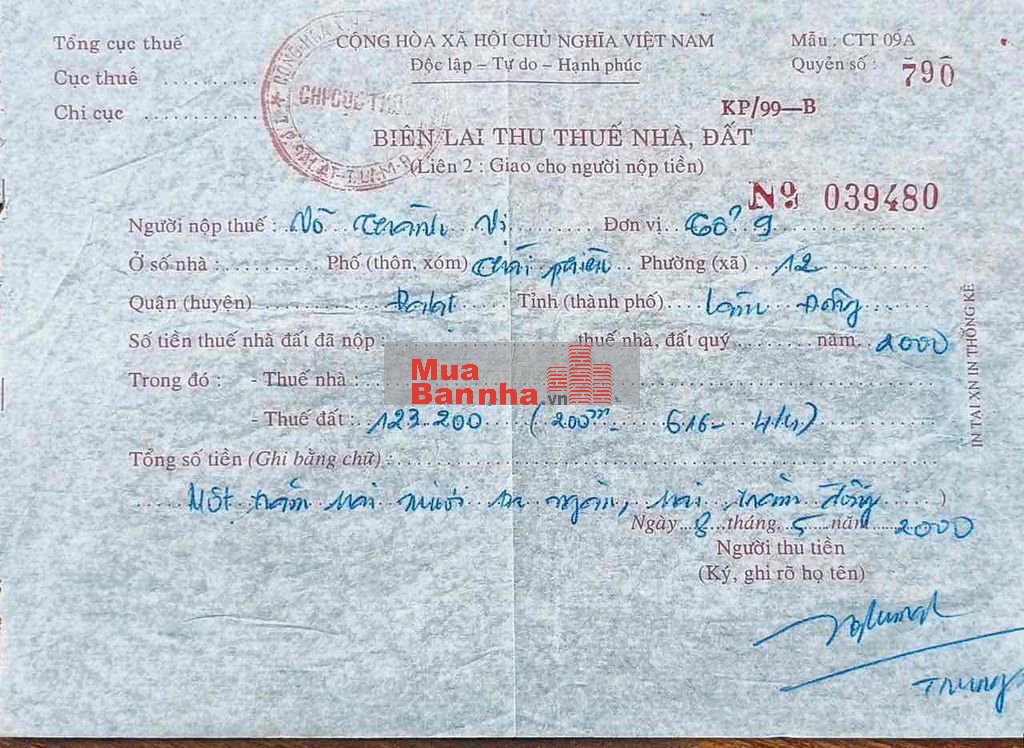 Tổng cục thuế
CỘNG HÒA XÃ HỘI CHỦ NGHĨA VIỆT NAM
Mẫu : CTT 09A
Cục thuế ............
Độc lập – Tự do – Hạnh phúc
Quyển số : 790
Chi cục ............
CHI CỤC THUẾ
KP/99—B
BIÊN LAI THU THUẾ NHÀ, ĐẤT
(Liên 2 : Giao cho người nộp tiền)
Nº 039480
Người nộp thuế : Võ Thành Vị Đơn vị Tổ 9
Ở số nhà : ............ Phố (thôn, xóm) Thái phiên Phường (xã) 12
Quận (huyện) Đalat Tỉnh (thành phố) Lâm Đồng
Số tiền thuế nhà đất đã nộp : ............ thuế nhà, đất quý ............ năm 2000
Trong đó : - Thuế nhà : ............
Mua
Bannha.vn
- Thuế đất : 123.200 (200m 616- 4/4)
Tổng số tiền (Ghi bằng chữ) : ............
Một trăm hai mươi ba ngàn, hai trăm đồng )
Ngày 8 tháng 5 năm 2000
Người thu tiền
(Ký, ghi rõ họ tên)
Trung
IN TẠI XN IN THỐNG KÊ